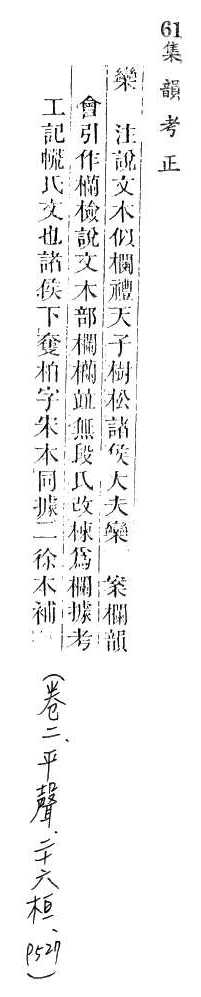 61集韻考正
欒 注說文木似欄禮天子樹松諸侯大夫欒 案欄韻
會引作欗檢說文木部欄欗竝無段氏改楝爲欄據考
工記㡛氏文也諸侯下奪柏字宋本同據二徐本補
(卷二、平聲、二十六桓、P527)